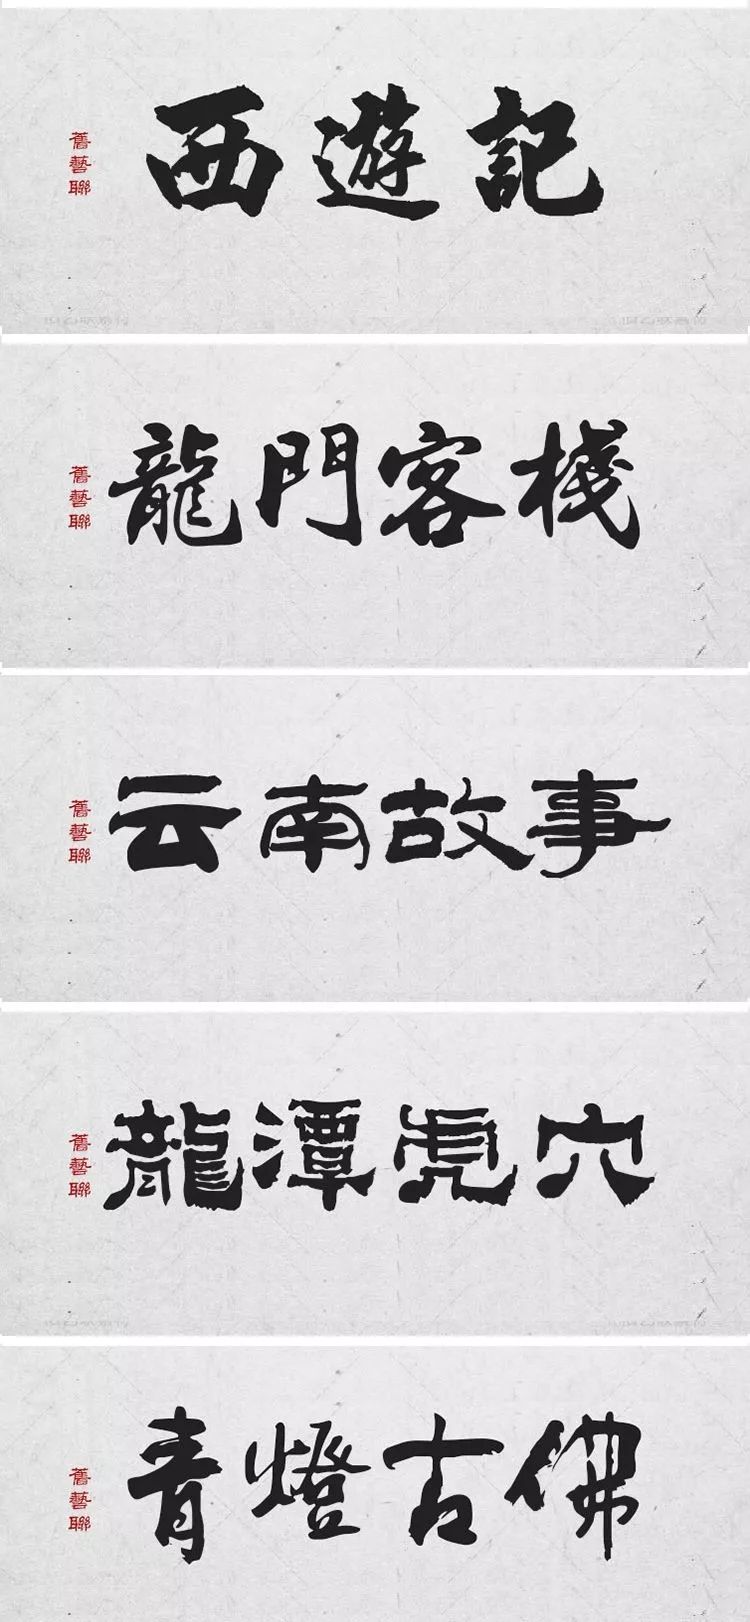 舊藝聯
西遊記
舊藝聯
龍門客棧
舊藝聯
云南故事
舊藝聯
龍潭虎穴
舊藝聯
青燈古佛